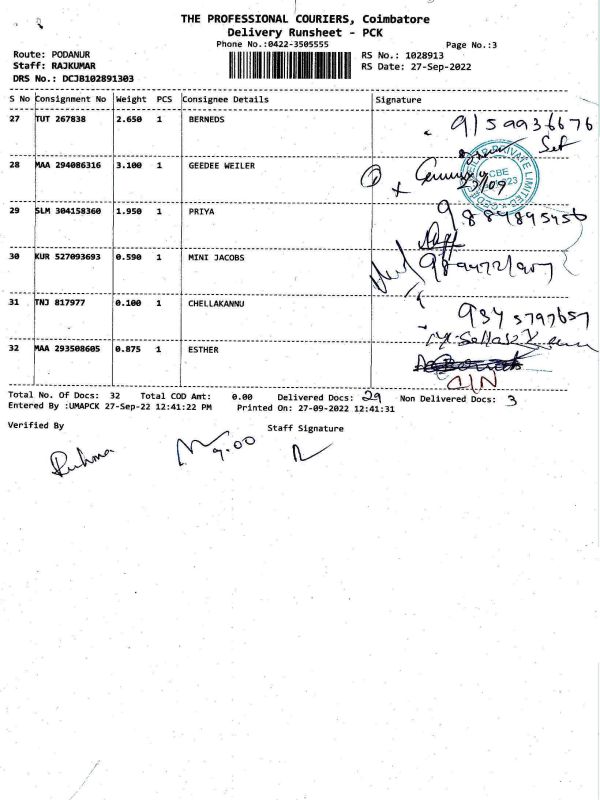 THE PROFESSIONAL COURIERS, Coimbatore
Delivery Runsheet - PCK
Phone No.:0422-3505555
Page No.:3
Route: PODANUR
RS No.: 1028913
Staff: RAJKUMAR
RS Date: 27-Sep-2022
DRS No.: DCJB102891303
S No Consignment No Weight PCS Consignee Details Signature
27 TUT 267838 2.650 1 BERNEDS 9159936676
28 MAA 294086316 3.100 1 GEEDEE WEILER
29 SLM 304158360 1.950 1 PRIYA
30 KUR 527093693 0.590 1 MINI JACOBS
31 TNJ 817977 0.100 1 CHELLAKANNU 9345797657
32 MAA 293508605 0.875 1 ESTHER
Total No. Of Docs: 32 Total COD Amt: 0.00 Delivered Docs: 29 Non Delivered Docs: 3
Entered By :UMAPCK 27-Sep-22 12:41:22 PM Printed On: 27-09-2022 12:41:31
Verified By Staff Signature
9.00